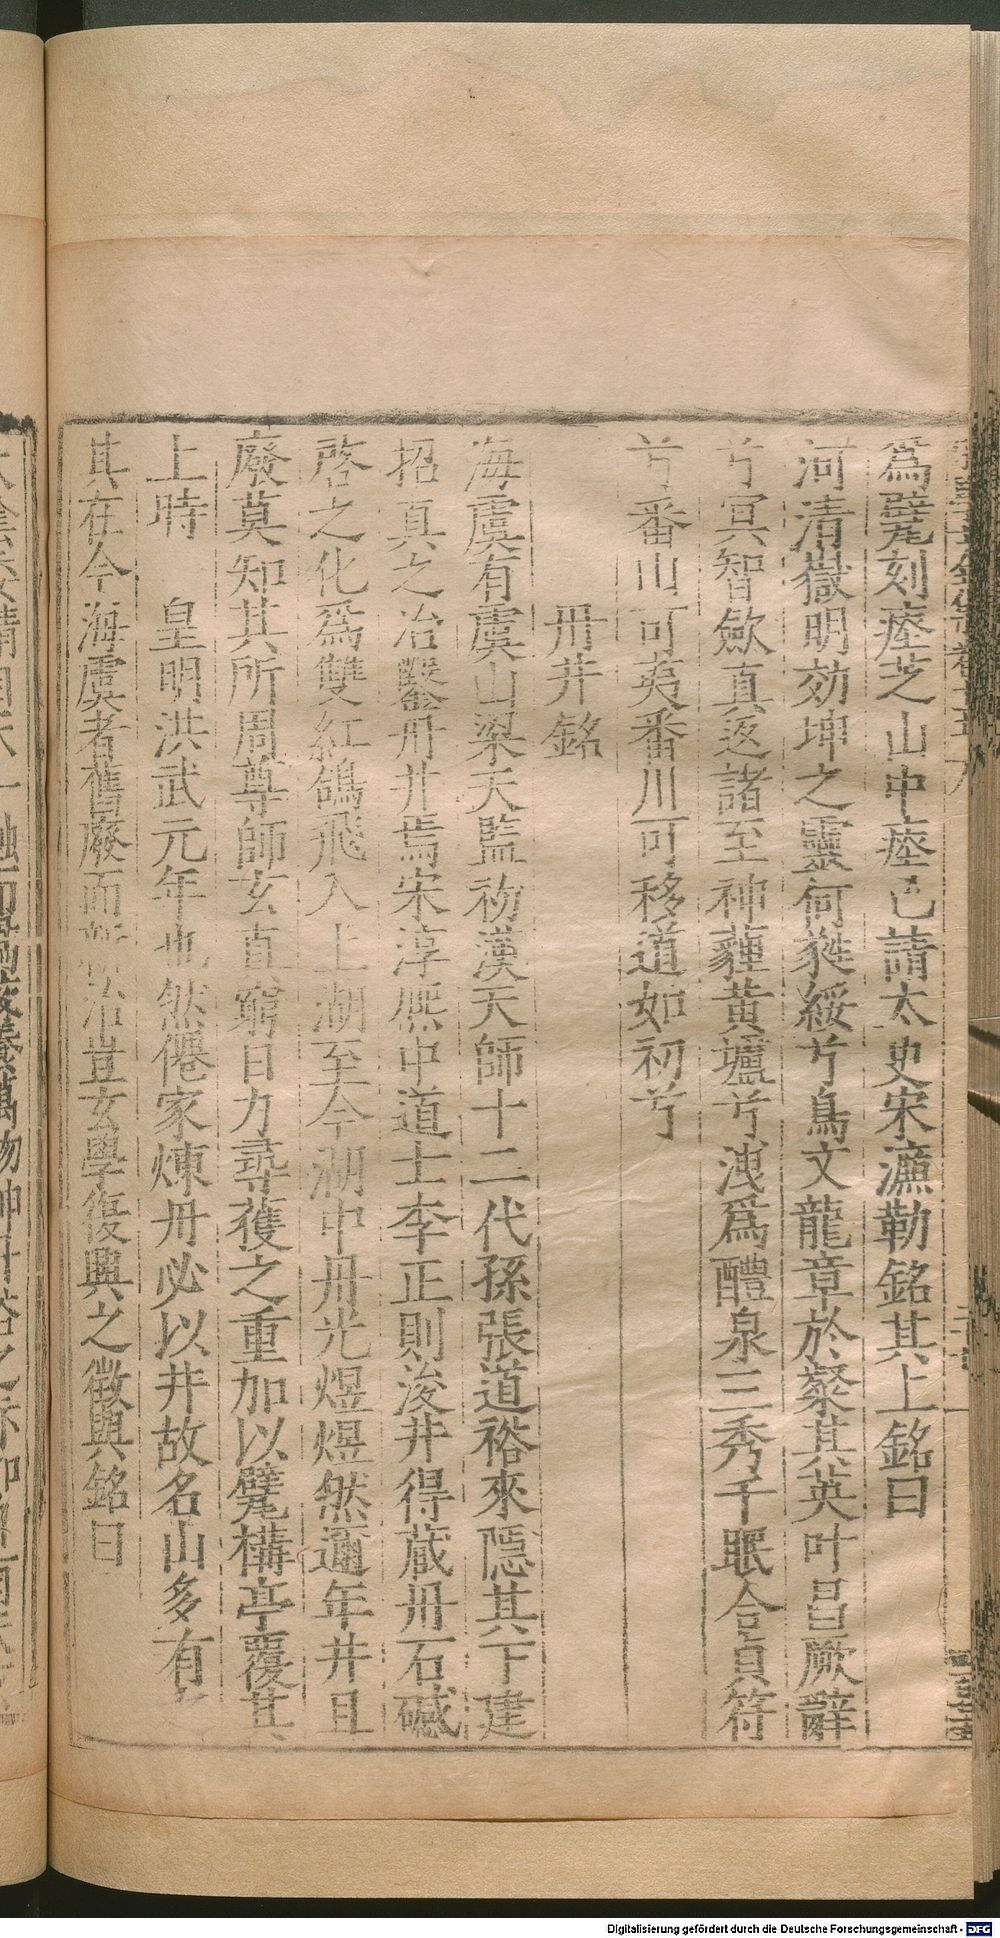 爲甓刻瘞芝山中瘞已請太史宋濂勒銘其上銘曰
河清嶽明効坤之靈何蕤綏兮鳥文龍章於粲其英叶昌厥辭
兮冥智歛真返諸至神蘊黃壚兮洩爲醴泉三秀千眠合貞符
兮番山可夷番川可移道如初兮
丹井銘
海虞有虞山梁天監初漢天師十二代孫張道裕來隱其下建
招真之治鑿丹井焉宋淳熙中道士李正則浚井得藏丹石瑊
啓之化爲雙紅鴿飛入上湖至今湖中丹光煜煜然邇年井且
廢莫知其所周尊師玄直窮目力尋獲之重加以甓構亭覆其
上時 皇明洪武元年也然僊家煉丹必以井故名山多有
其在今海虞者舊廢而新治豈玄學復興之徵與銘曰
Digitalisierung gefördert durch die Deutsche Forschungsgemeinschaft - DFG